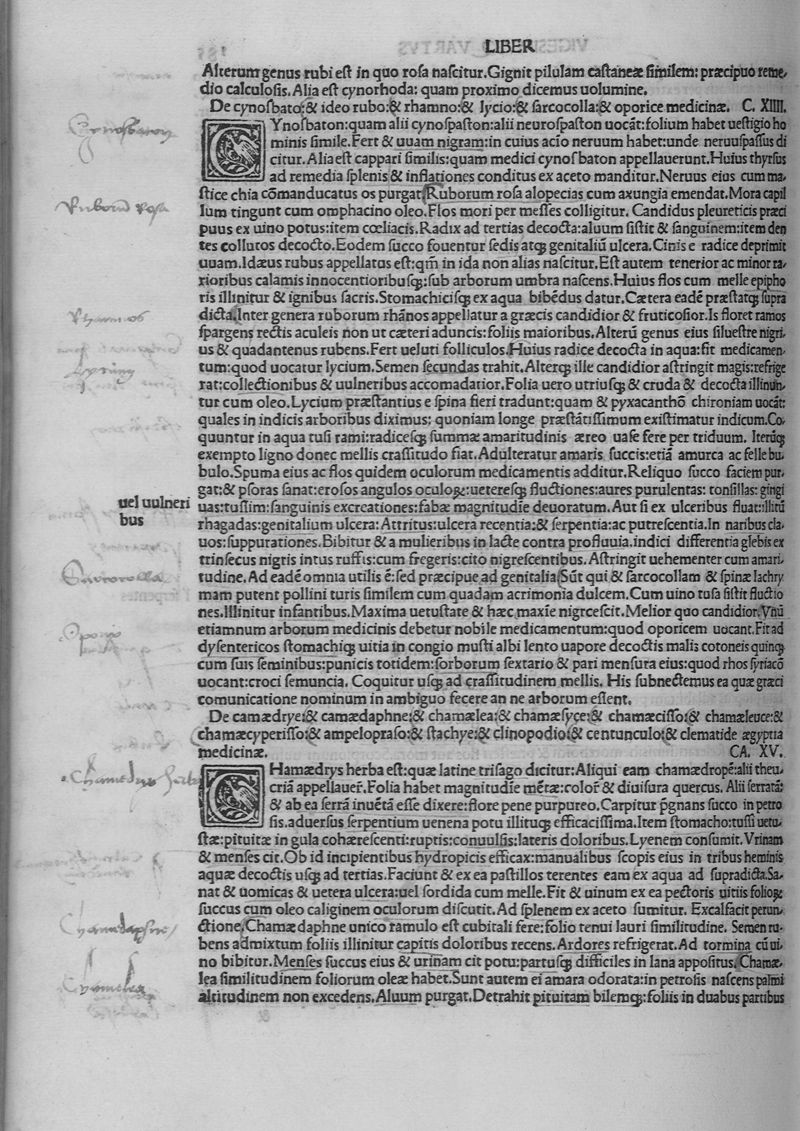 LIBER
Alterum genus rubi eſt in quo roſa naſcitur.Gignit pilulam caſtaneæ ſimilem: præcipuo reme-
dio calculoſis.Alia eſt cynorhoda: quam proximo dicemus uolumine.
De cynoſbato:& ideo rubo:& rhamno:& lycio:& ſarcocolla:& oporice medicinæ. C. XIIII.
CYnoſbaton:quam alii cynoſpaſton:alii neuroſpaſton uocāt:folium habet ueſtigio ho
minis ſimile.Fert & uuam nigram:in cuius acīo neruum habet:unde neruuſpaſſus di
citur.Alia eſt cappari ſimilis:quam medici cynoſbaton appellauerunt.Huius thyrſus
ad remedia ſplenis & inflationes conditus ex aceto manditur.Neruus eius cum ma-
ſtice chia cōmanducatus os purgat.Ruborum roſa alopecias cum axungia emendat.Mora capil
lum tingunt cum omphacino oleo.Flos mori per meſſes colligitur. Candidus pleureticis præci
puus ex uino potus:item cœliacis.Radix ad tertias decocta:aluum ſiſtit & ſanguinem:item den
tes collutos decocto.Eodem ſucco fouentur ſedis atq; genitaliū ulcera.Cinis e radice deprimit
uuam.Idæus rubus appellatus eſt:qm̄ in ida non alias naſcitur.Eſt autem tenerior ac minor ra-
rioribus calamis innocentioribuſq;:ſub arborum umbra naſcens.Huius flos cum melle epipho
ris illinitur & ignibus ſacris.Stomachiciſq; ex aqua bibēdus datur.Cætera eadē præſtatq; ſupra
dicta.Inter genera ruborum rhānos appellatur a græcis candidior & fruticoſior.Is floret ramos
ſpargens rectis aculeis non ut cæteri aduncis:foliis maioribus.Alterū genus eius ſilueſtre nigri-
us & quadantenus rubens.Fert ueluti folliculos.Huius radice decocta in aqua:fit medicamen-
tum:quod uocatur lycium.Semen ſecundas trahit.Alterq; ille candidior aſtringit magis:refrige
rat:collectionibus & uulneribus accomadatior.Folia uero utriuſq; & cruda & decocta illinun-
tur cum oleo.Lycium præſtantius e ſpina fieri tradunt:quam & pyxacanthō chironiam uocāt:
quales in indicis arboribus diximus: quoniam longe præſtātiſſimum exiſtimatur indicum.Co-
quuntur in aqua tuſi rami:radiceſq; ſummæ amaritudinis æreo uaſe fere per triduum. Iterūq;
exempto ligno donec mellis craſſitudo fiat.Adulteratur amaris ſuccis:etiā amurca ac felle bu-
bulo.Spuma eius ac flos quidem oculorum medicamentis additur.Reliquo ſucco faciem pur-
gat:& pſoras ſanat:eroſos angulos oculoꝝ:uetereſq; fluctiones:aures purulentas: tonſillas: gingi
uel uulneri
bus
uas:tuſſim:ſanguinis excreationes:fabæ magnitudīe deuoratum. Aut ſi ex ulceribus fluat:illitū
rhagadas:genitalium ulcera: Attritus:ulcera recentia:& ſerpentia:ac putreſcentia.In naribus cla-
uos:ſuppurationes.Bibitur & a mulieribus in lacte contra profluuia.indici differentia glebis ex
trinſecus nigris intus ruffis:cum fregeris:cito nigreſcentibus. Aſtringit uehementer cum amari-
tudine.Ad eadē omnia utilis ē:ſed præcipue ad genitalia.Sūt qui & ſarcocollam & ſpinæ lachry
mam putent pollini turis ſimilem cum quadam acrimonia dulcem.Cum uino tuſa ſiſtit fluctio
nes.Illinitur infantibus.Maxima uetuſtate & hæc maxīe nigreſcit.Melior quo candidior.Vnū
etiamnum arborum medicinis debetur nobile medicamentum:quod oporicem uocant.Fit ad
dyſentericos ſtomachiq; uitia in congio muſti albi lento uapore decoctis malis cotoneis quinq;
cum ſuis ſeminibus:punicis totidem:ſorborum ſextario & pari menſura eius:quod rhos ſyriacō
uocant:croci ſemuncia. Coquitur uſq; ad craſſitudinem mellis. His ſubnectemus ea quæ græci
comunicatione nominum in ambiguo fecere an ne arborum eſſent.
De camædrye:& camædaphne:& chamælea:& chamæſyce:& chamæciſſo:& chamæleuce:&
chamæcyperiſſo:& ampelopraſo:& ſtachye:& clinopodio:& centunculo:& clematide ægyptia
medicinæ. CA. XV.
CHamædrys herba eſt:quæ latine triſago dicitur:Aliqui eam chamædropē:alii theu-
criā appellauer̄.Folia habet magnitudīe mētæ:color̄ & diuiſura quercus. Alii ſerratā:
& ab ea ſerrā inuētā eſſe dixere:flore pene purpureo.Carpitur p̄gnans ſucco in petro
ſis.aduerſus ſerpentium uenena potu illituq; efficaciſſima.Item ſtomacho:tuſſi uetu-
ſtæ:pituitæ in gula cohæreſcenti:ruptis:conuulſis:lateris doloribus.Lyenem conſumit. Vrinam
& menſes cit.Ob id incipientibus hydropicis efficax:manualibus ſcopis eius in tribus heminis
aquæ decoctis uſq; ad tertias.Faciunt & ex ea paſtillos terentes eam ex aqua ad ſupradicta.Sa-
nat & uomicas & uetera ulcera:uel ſordida cum melle.Fit & uinum ex ea pectoris uitiis folioꝝ
ſuccus cum oleo caliginem oculorum diſcutit.Ad ſplenem ex aceto ſumitur. Excalfacit perun-
ctione.Chamædaphne unico ramulo eſt cubitali fere:folio tenui lauri ſimilitudine. Semen ru-
bens admixtum foliis illinitur capitis doloribus recens.Ardores refrigerat.Ad tormina cū ui-
no bibitur.Menſes ſuccus eius & urinam cit potu:partuſq; difficiles in lana appoſitus.Chamæ-
lea ſimilitudinem foliorum oleæ habet.Sunt autem ei amara odorata:in petroſis naſcens palmi
altitudinem non excedens.Aluum purgat.Detrahit pituitam bilemq;:foliis in duabus partibus